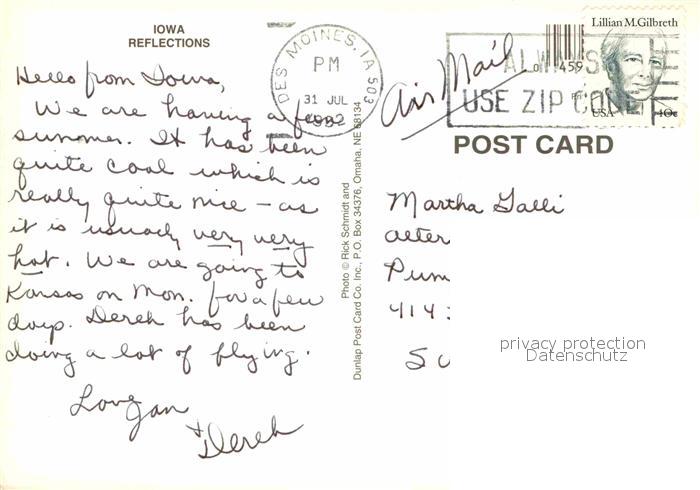 IOWA
REFLECTIONS
Hello from Iowa,
We are having a fun
summer. It has been
quite cool which is
really quite nice – as
it is usually very very
hot. We are going to
Kansas on Mon. for a few
days. Derek has been
doing a lot of flying.
Love Jan
+ Derek
DES MOINES, IA 503
PM
31 JUL
1992
Photo © Rick Schmidt and
Dunlap Post Card Co. Inc., P.O. Box 34376, Omaha, NE 68134
Air Mail
ALWAYS
USE ZIP CODE
459
Lillian M. Gilbreth
USA 40c
POST CARD
Martha Galli
Pum
414
privacy protection
Datenschutz